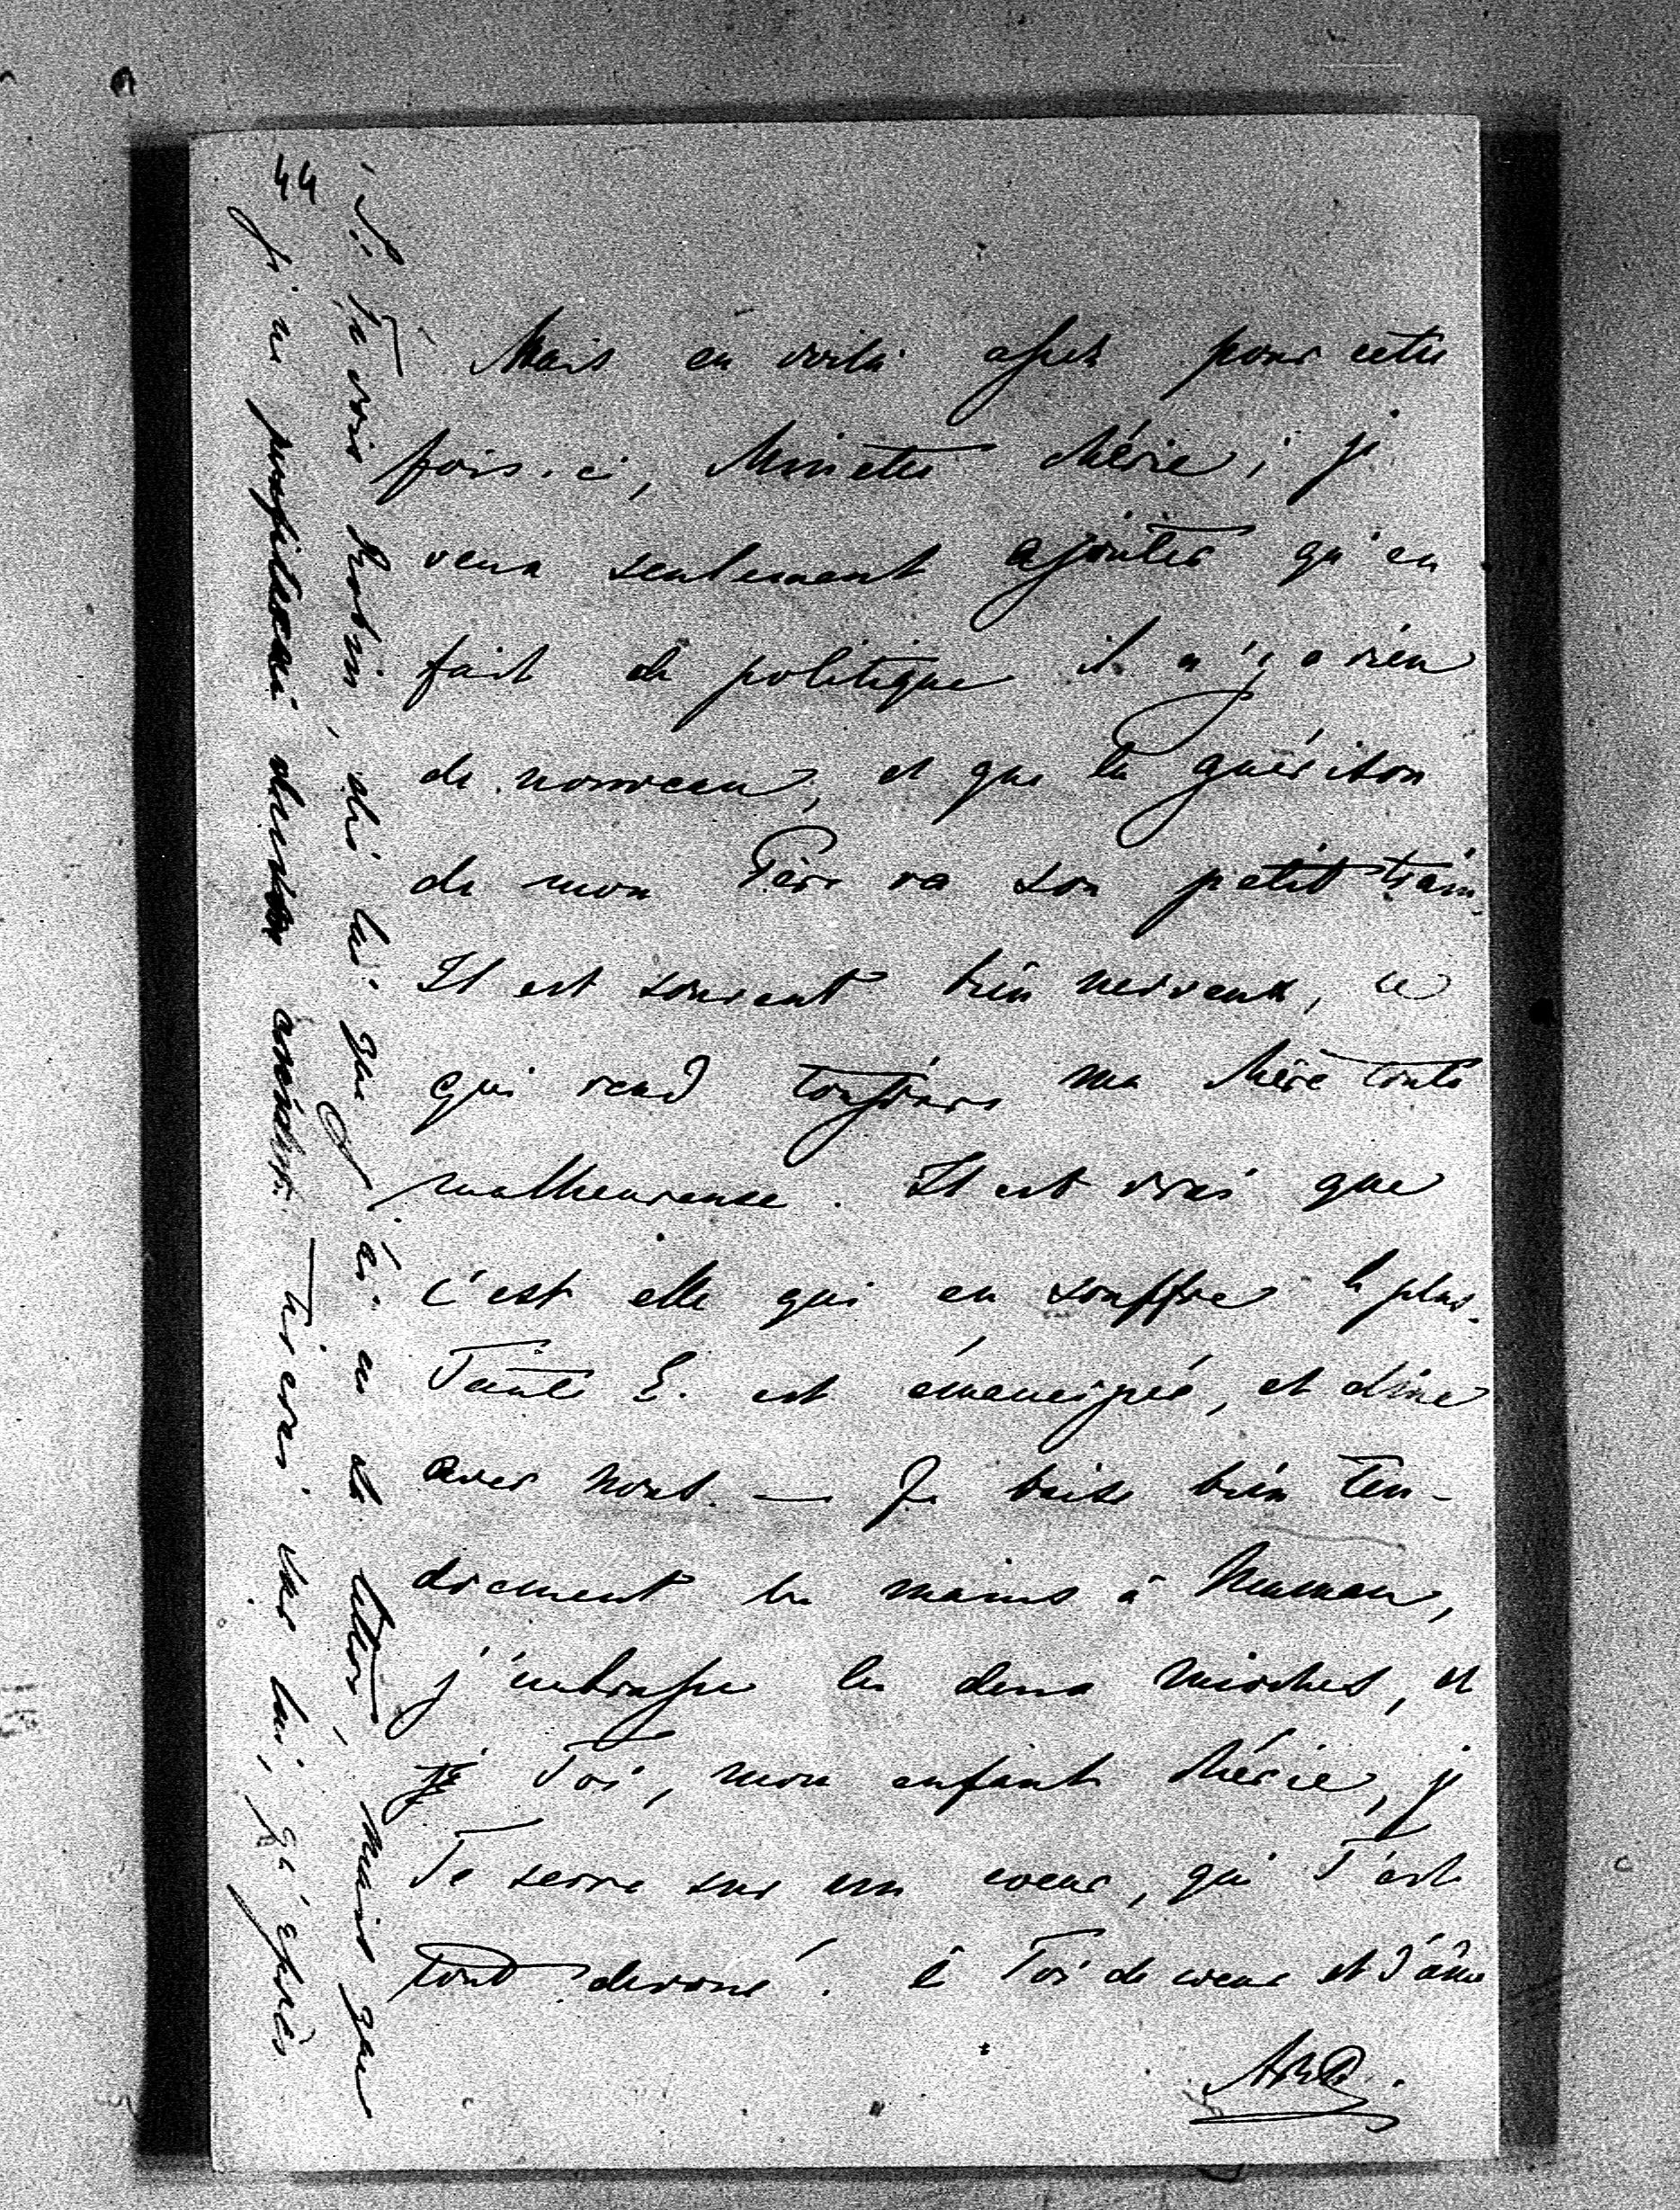 44
Mais en voilà assez pour cette
fois-ci, Minette chérie; je
veux seulement ajouter qu'en
fait de politique il n'y a rien
de nouveau, et que la guérison
de mon Père va son petit train.
Il est souvent bien nerveux, ce
qui rend toujours ma Mère toute
malheureuse. Il est vrai que
c'est elle qui en souffre le plus.
Tante E. est émancipée, et dîne
avec nous. — Je baise bien ten-
drement les mains à Maman,
j'embrasse les deux mioches, et
je Toi, mon enfant chérie, je
Te serre sur un coeur, qui T'est
tout dévoué. à Toi de coeur et d'âme
Si Tu vois Robin, dis lui que j'ai eu sa lettre, mais que
je ne profiterai de son amitié. Tu seras lui qu'après